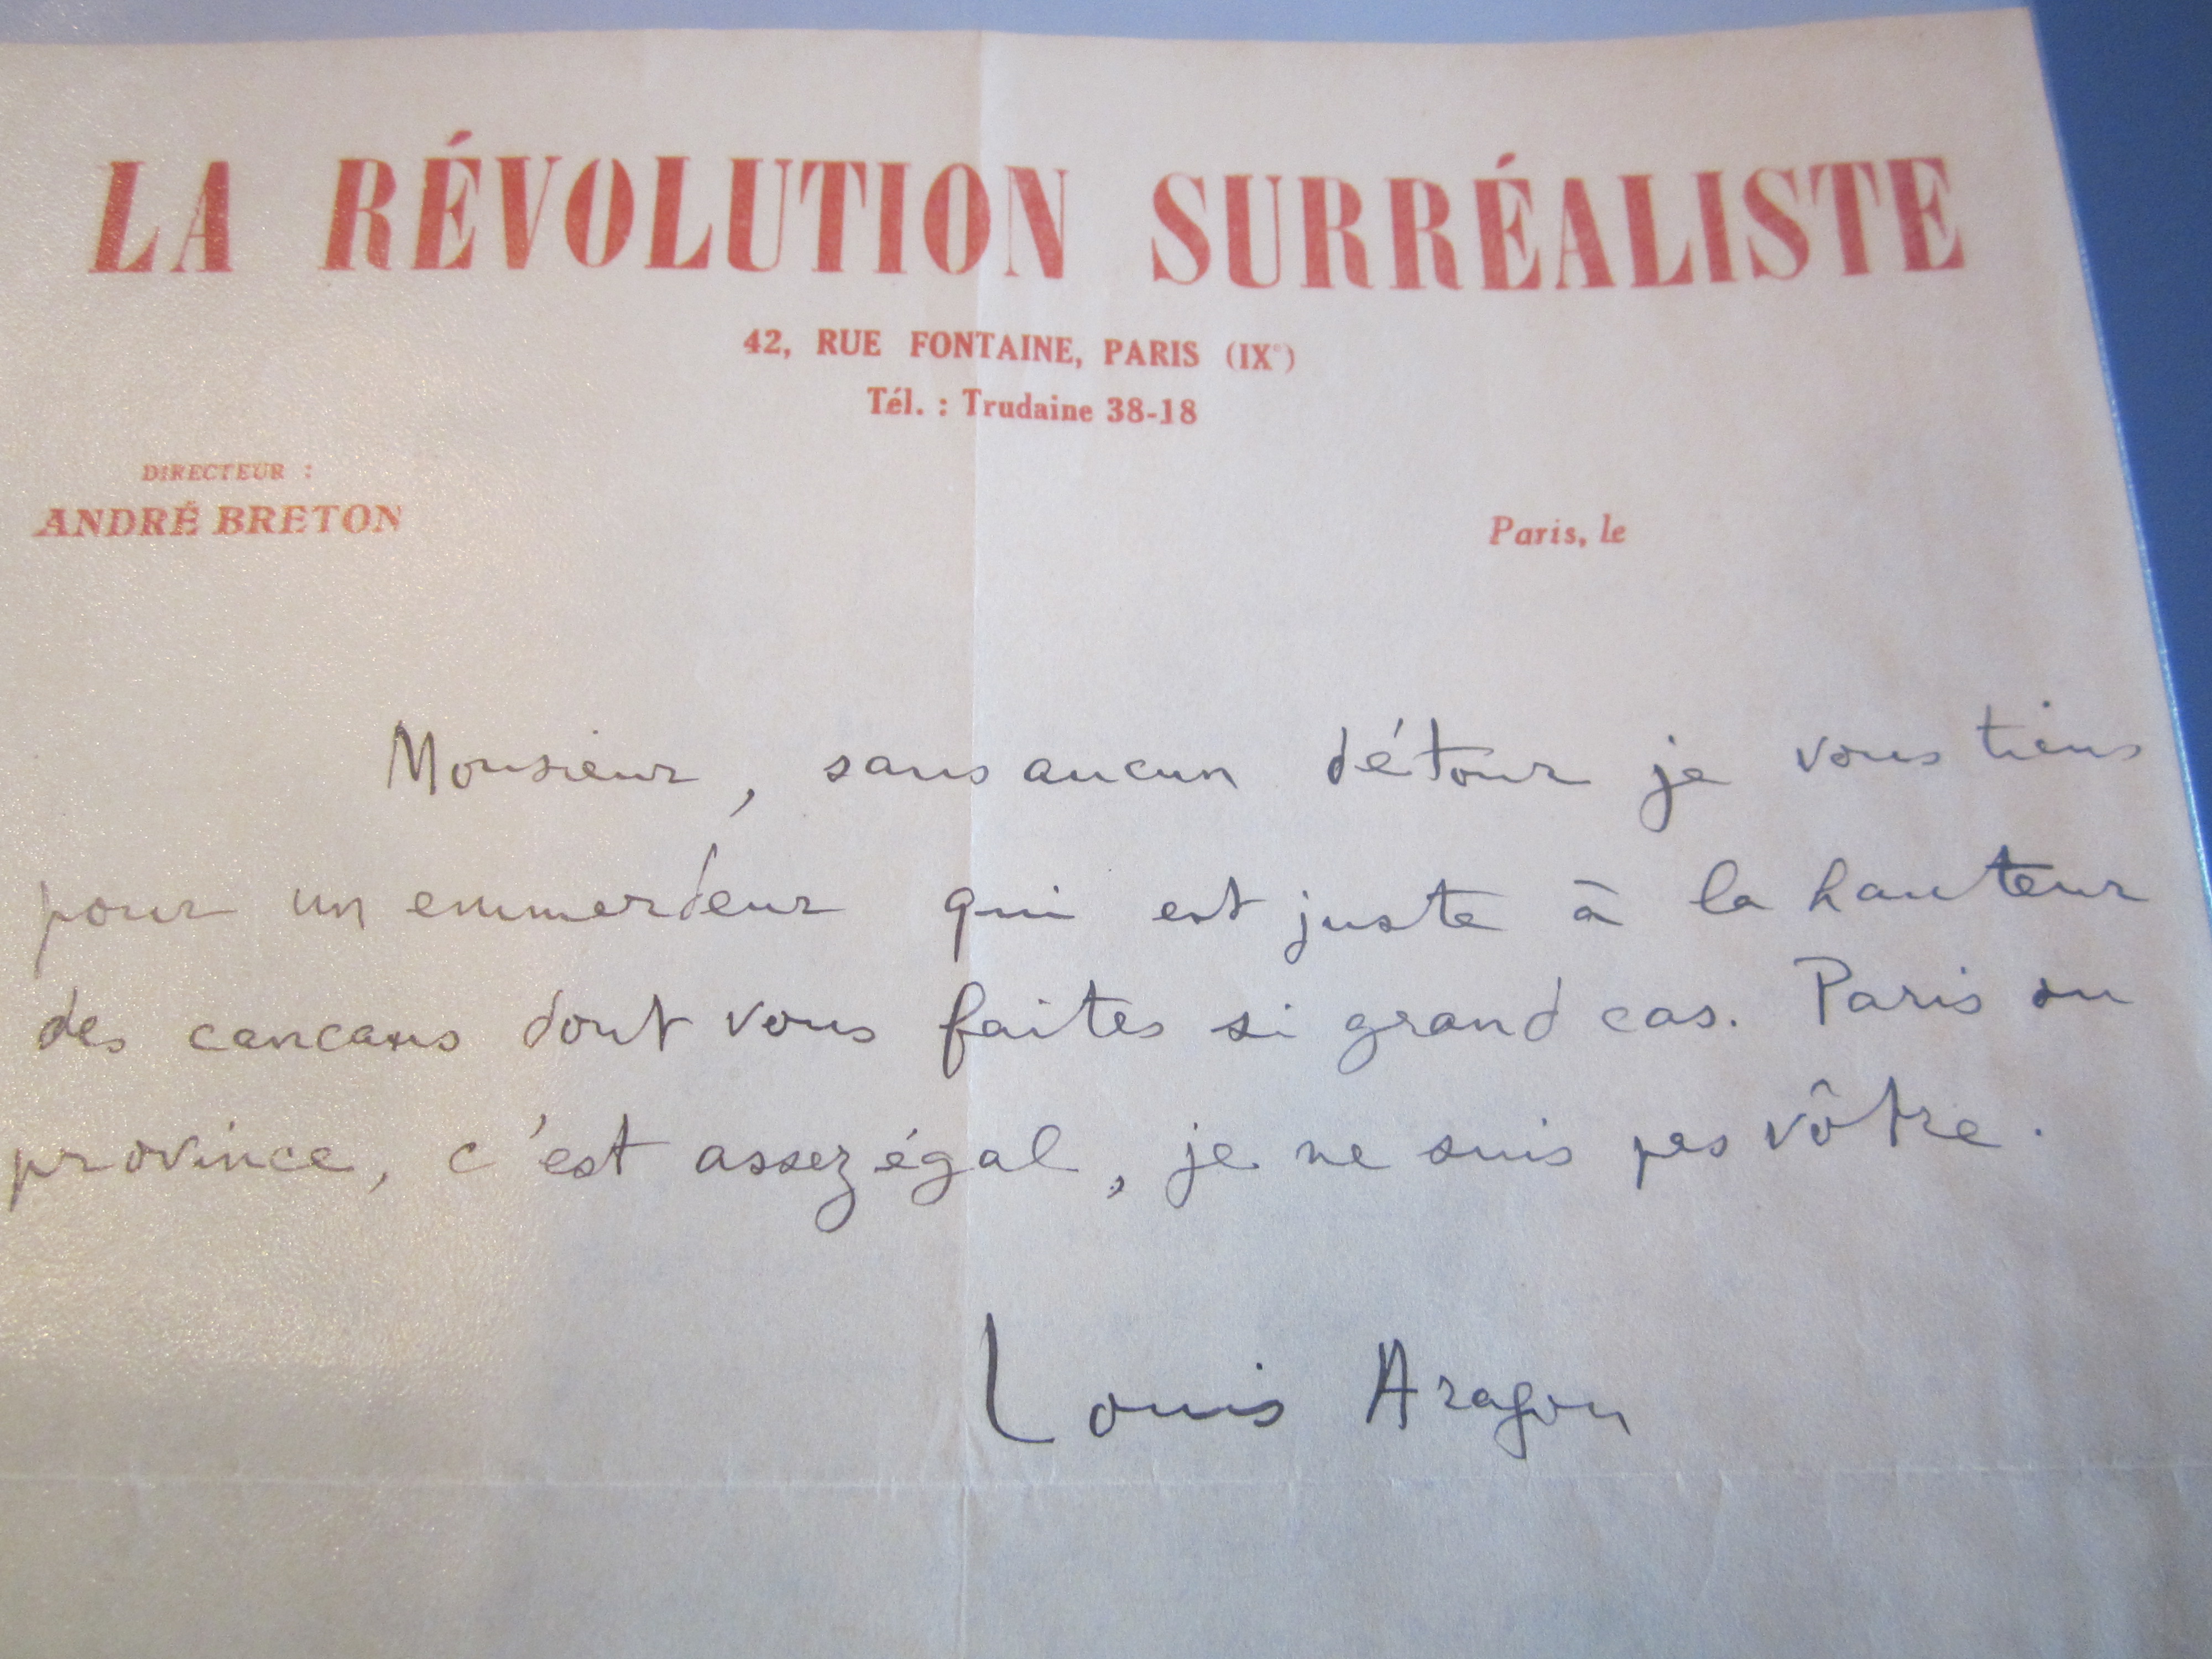 LA RÉVOLUTION SURRÉALISTE
42, RUE FONTAINE, PARIS (IXe)
Tél. : Trudaine 38-18
DIRECTEUR :
ANDRÉ BRETON
Paris, le
Monsieur, sans aucun détour je vous tiens
pour un emmerdeur qui est juste à la hauteur
des cancans dont vous faites si grand cas. Paris ou
province, c'est assez égal, je ne suis pas vôtre.
Louis Aragon